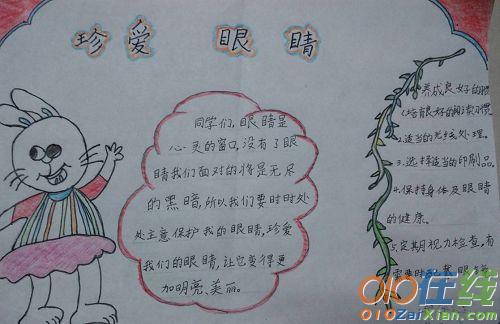 珍爱 眼睛
同学们,眼睛是
心灵的窗口,没有了眼
睛我们面对的将是无尽
的黑暗,所以我们要时时处
处主意保护我的眼睛,珍爱
我们的眼睛,让它变得更
加明亮、美丽。
养成良好的
1.培育良好的阅读习惯
2.适当的光线处理。
3.选择适当的印刷品
4.保持身体及眼睛
的健康。
5.定期视力检查,有
需要时
010在线
010ZaiXian.com